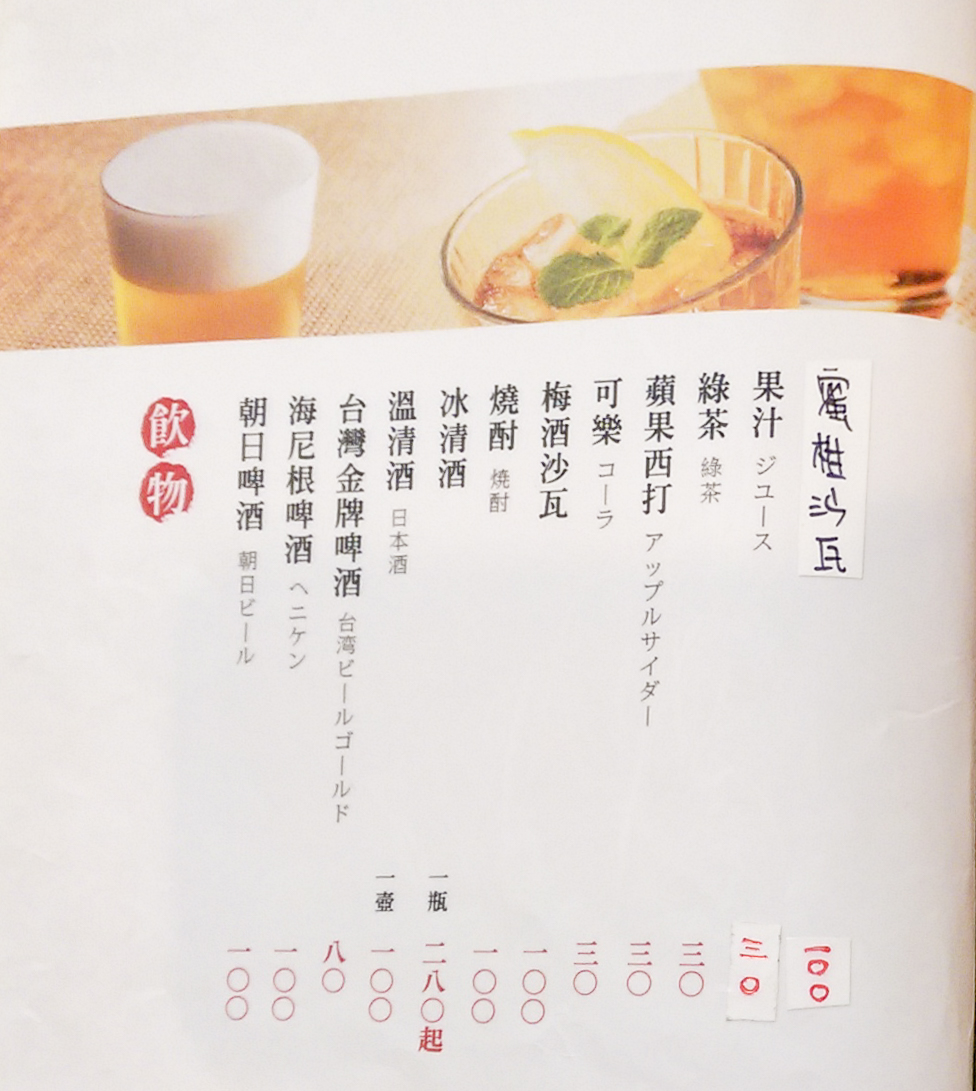 蜜桂沙瓦 一〇〇
果汁 ジユース 三〇
綠茶 綠茶 三〇
蘋果西打 アップルサイダー 三〇
可樂 コーラ 三〇
梅酒沙瓦 一〇〇
燒酎 焼酎 一〇〇
冰清酒 一瓶 二八〇起
溫清酒 日本酒 一壺 一〇〇
台灣金牌啤酒 台湾ビールゴールド 八〇
海尼根啤酒 ヘニケン 一〇〇
朝日啤酒 朝日ビール 一〇〇
飲物